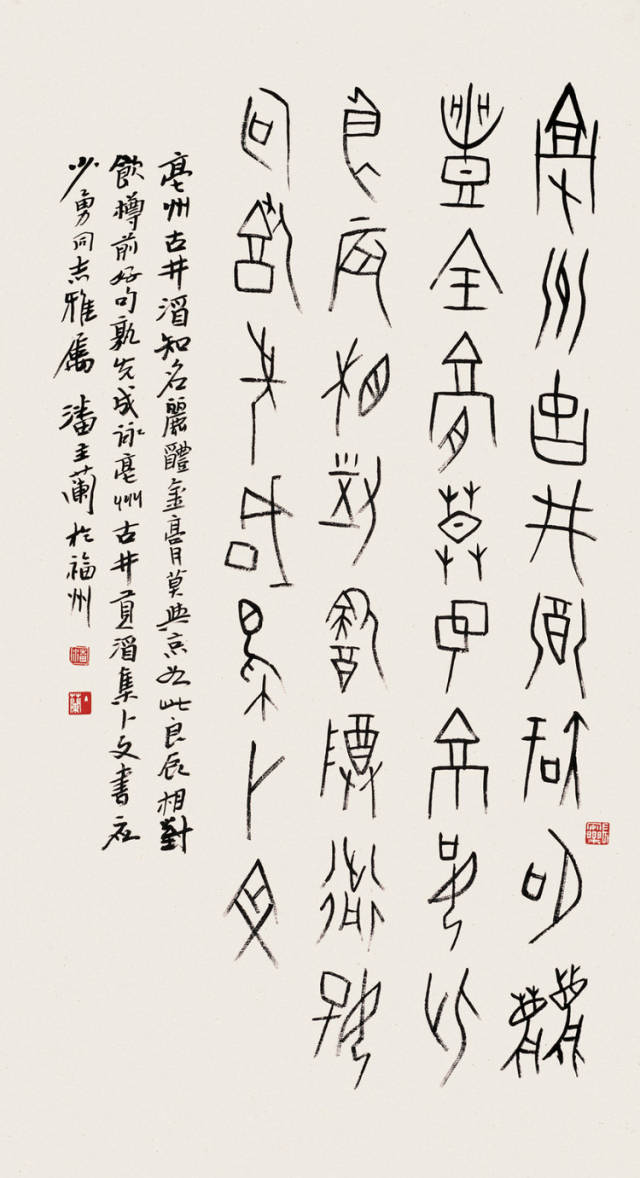 亳州古井酒知名麗
醴金膏莫與京如此
良辰相對飲樽前好
句孰先成集卜文
亳州古井酒知名麗醴金膏莫與京如此良辰相對
飲樽前好句孰先成詠亳州古井貢酒集卜文書應
少勇同志雅屬 潘主蘭於福州